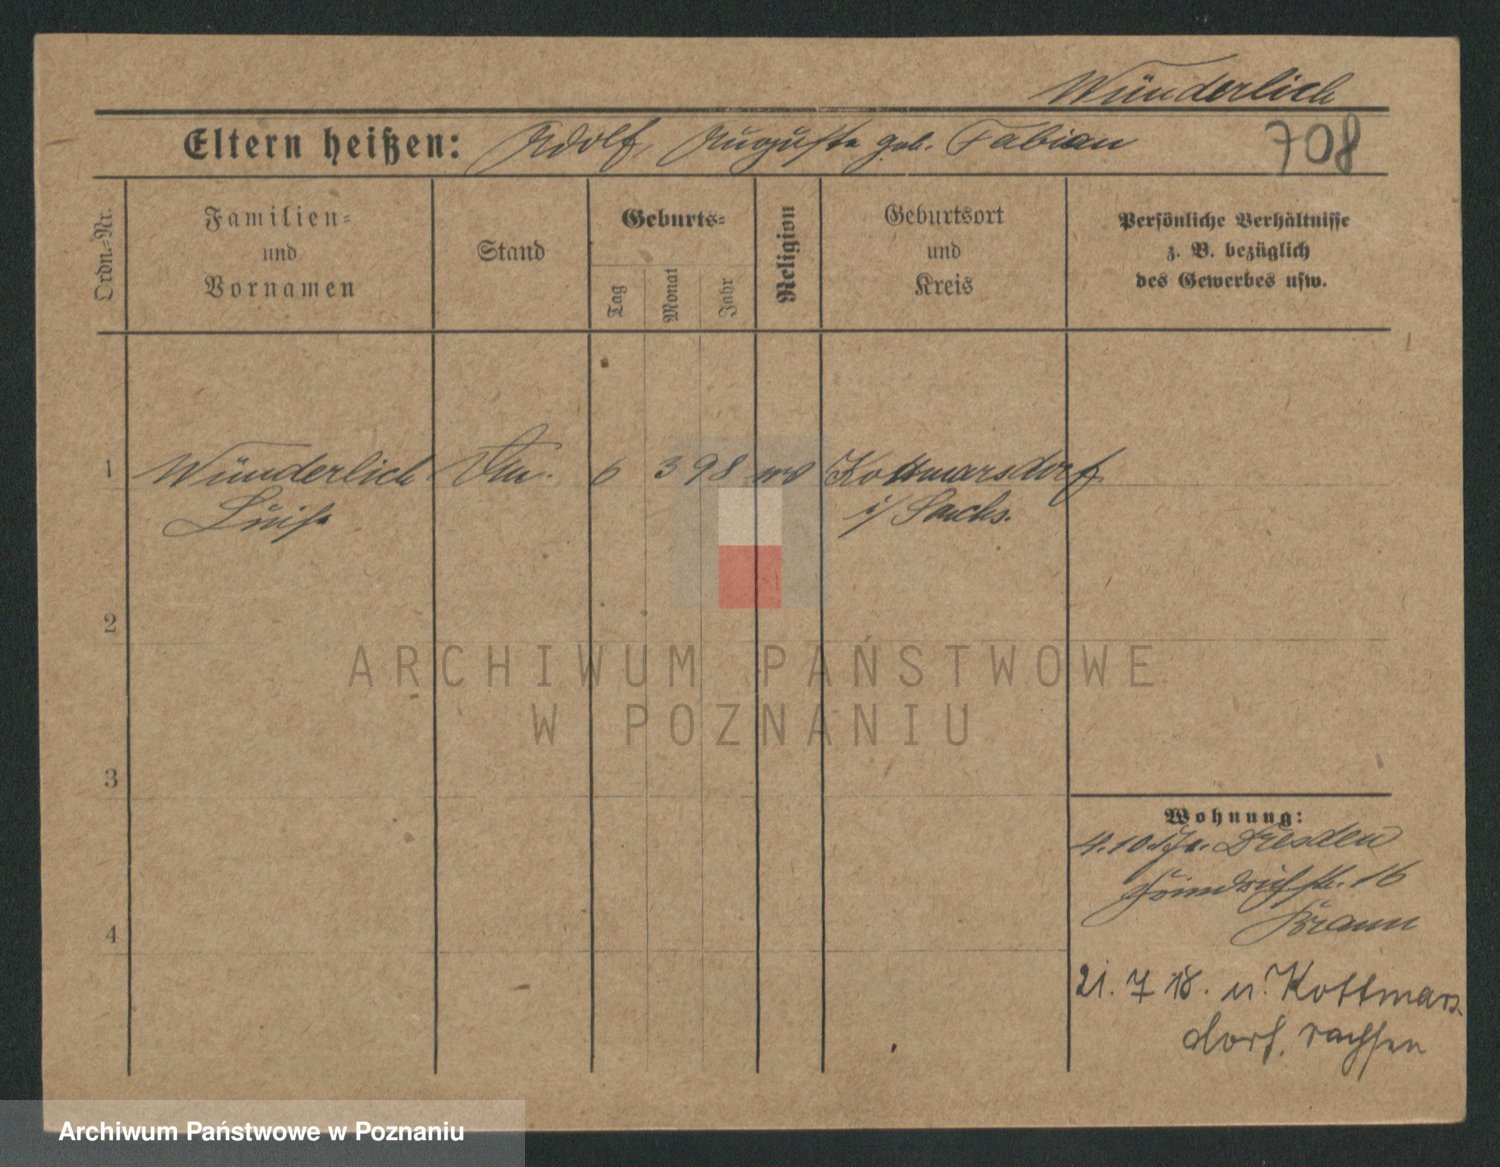 Wünderlich
Eltern heißen: Adolf, Auguste geb. Fabian
708
Ordn.-Nr.
Familien- und Vornamen
Stand
Geburts-
Tag
Monat
Jahr
Religion
Geburtsort und Kreis
Persönliche Verhältnisse
z. B. bezüglich
des Gewerbes usw.
1 Wünderlich 6 3 98 Kottmarsdorf
Luise i/ Sachs.
2
ARCHIWUM PAŃSTWOWE
W POZNANIU
3
Wohnung:
4.10.17 Dresden
16
Braun
4
21. 7 18. n. Kottmars
dorf,
Archiwum Państwowe w Poznaniu